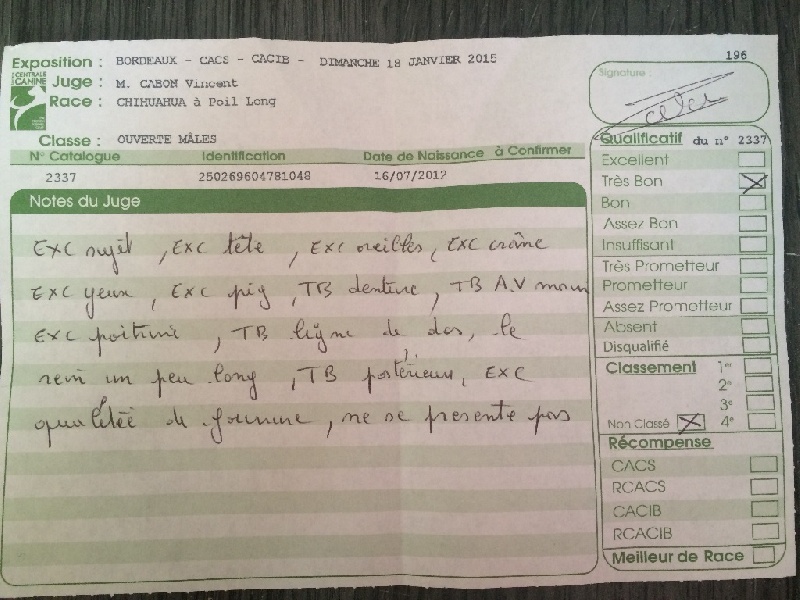 196
Exposition : BORDEAUX - CACS - CACIB - DIMANCHE 18 JANVIER 2015
CENTRALE CANINE
Juge : M. CABON Vincent
Race : CHIHUAHUA à Poil Long
Classe : OUVERTE MÂLES
N° Catalogue Identification Date de Naissance à Confirmer
2337 250269604781048 16/07/2012
Notes du Juge
EXC sujet, EXC tête, EXC oreilles, EXC crâne
EXC yeux, EXC pig, TB denture, TB A.V main
EXC poitrine, TB ligne de dos, le
rein un peu long, TB postérieur, EXC
qualitée de fourrure, ne se presente pas
Signature :
Qualificatif du n° 2337
Excellent
Très Bon X
Bon
Assez Bon
Insuffisant
Très Prometteur
Prometteur
Assez Prometteur
Absent
Disqualifié
Classement 1er
2e
3e
Non Classé X 4e
Récompense
CACS
RCACS
CACIB
RCACIB
Meilleur de Race